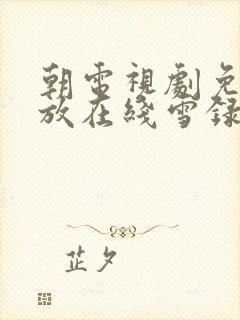 朝雪視劇免
放在綫雪録
芷夕